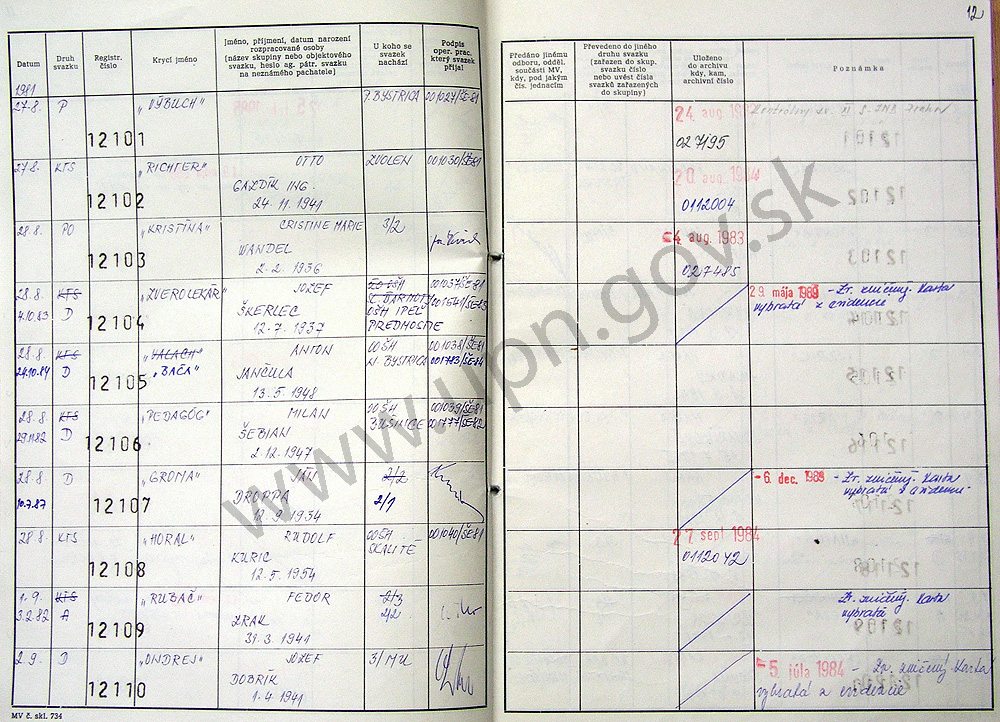 12
Datum
Druh svazku
Registr. číslo
Krycí jméno
Jméno, příjmení, datum narození rozpracované osoby (název skupiny nebo objektového svazku, heslo ag. pátr. svazku na neznámého pachatele)
U koho se svazek nachází
Podpis oper. prac. který svazek přijal
Předáno jinému odboru, odděl. součásti MV, kdy, pod jakým čís. jednacím
Převedeno do jiného druhu svazku (zařazen do skup. svazku číslo nebo uvést čísla svazků zařazených do skupiny)
Uloženo do archivu kdy, kam, archivní číslo
Poznámka
1981
27.8. P 12101 "VÝBUCH" P. BYSTRICA 001027/ŠE-81
24. aug.
027195
27.8. KTS 12102 "RICHTER" OTTO ZVOLEN 001030/ŠE-81
GALDÍK ING.
24. 11. 1941
20 aug. 1984
0112004
28.8. PO 12103 "KRISTÍNA" CRISTINE MARIE 3/2
WANDEL
2. 2. 1956
4 aug. 1983
027485
28.8. KTS 12104 "ZVEROLEKÁR" JOZEF 001037/ŠE-81
4.10.83 D
ŠKERLEC
OŠH IPEĽ
PREDMOSTIE
12. 7. 1937
29. mája 1989 - Zv. zničený. Karta
vybratá z evidencie
28.8 KTS 12105 "VALACH" ANTON OOŠH 001038/ŠE81
24.10.84 D "BAČA" N. BYSTRICA 001773/ŠE-84
JANČULA
13. 5. 1948
28.8 KTS 12106 "PEDAGÓG" MILAN OOŠH 001039/ŠE81
29.11.82 D
ŠEBIAN
BUŠINCE 001777/ŠE-82
2. 12. 1947
28.8 D 12107 "GROMA" JÁN 2/2
10.7.87
DROPPA 2/1
12. 9. 1954
- 6. dec. 1989 - Zv. zničený. Karta
vybratá z evidencie
28 8 KTS 12108 "HORAL" RUDOLF OOŠH 001040/ŠE81
SKALITÉ
KURIC
12. 5. 1954
27. sept 1984
0112042
1. 9. KTS 12109 "RUBAČ" FEDOR 2/3
3.2.82 A 2/2
ZRAK
31. 3. 1941
Zv. zničený. Karta
vybratá
2 9. D 12110 "ONDREJ" JOZEF 3/MU
DOBRÍK
1. 4. 1941
5. júla 1984 - Zv. zničený Karta
vybratá z evidencie
MV č. skl. 734
www.upn.gov.sk